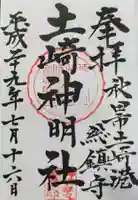 奉拝
秋田土崎港
総鎮守
土崎神明社
平成二十九年七月十六日